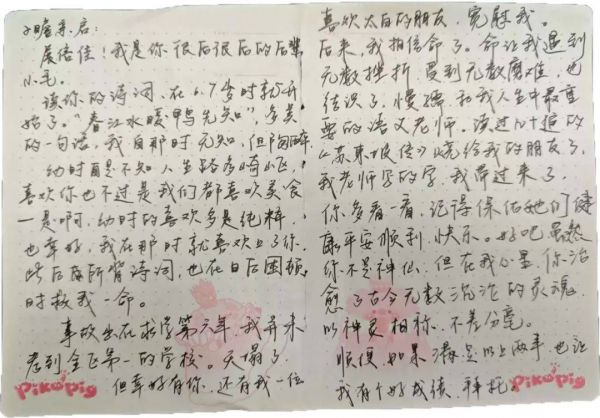 子瞻亲启:
展信佳!我是你很后很后的后辈
小毛。
读你的诗词,在6、7岁时就开
始了。"春江水暖鸭先知",多美
的一句话,我自那时无知,但陶醉
幼时自是不知人生路多崎岖,
喜欢你也不过是我们都喜欢美食
一是啊,幼时的喜欢多是纯粹,
也幸好,我在那时就喜欢上了你,
此后每所背诗词,也在日后困顿
时救我一命。
事故出在求学第六年,我并未
考到全区第一的学校。天塌了
但幸好有你,还有我一位
喜欢太白的朋友,宽慰我。
后来,我相信命了。命让我遇到
无数挫折,受到无数磨难,也
结识了、慢孺、和我人生中最重
要的语文老师。读过N+遍的
《苏东坡传》烧给我的朋友了,
我老师写的字,我带过来了,
你多看一看,记得保佑她们健
康平安顺利,快乐。好吧虽然
你不是神仙,但在我心里,你治
愈了古今无数沉沦的灵魂,
以神灵相称,不差分毫。
顺便,如果满足以上两事,也让
我有个好成绩,拜托。
PikoPig
PikoPig